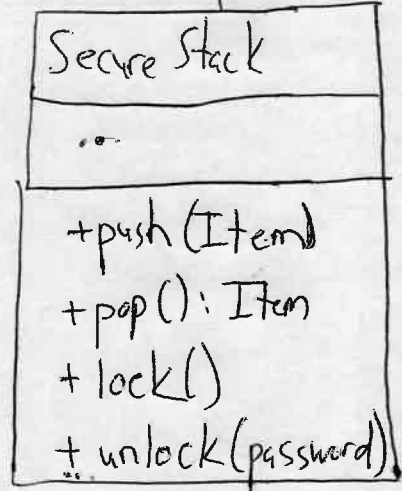 Secure Stack
...
+push(Item)
+pop(): Item
+lock()
+unlock(password)